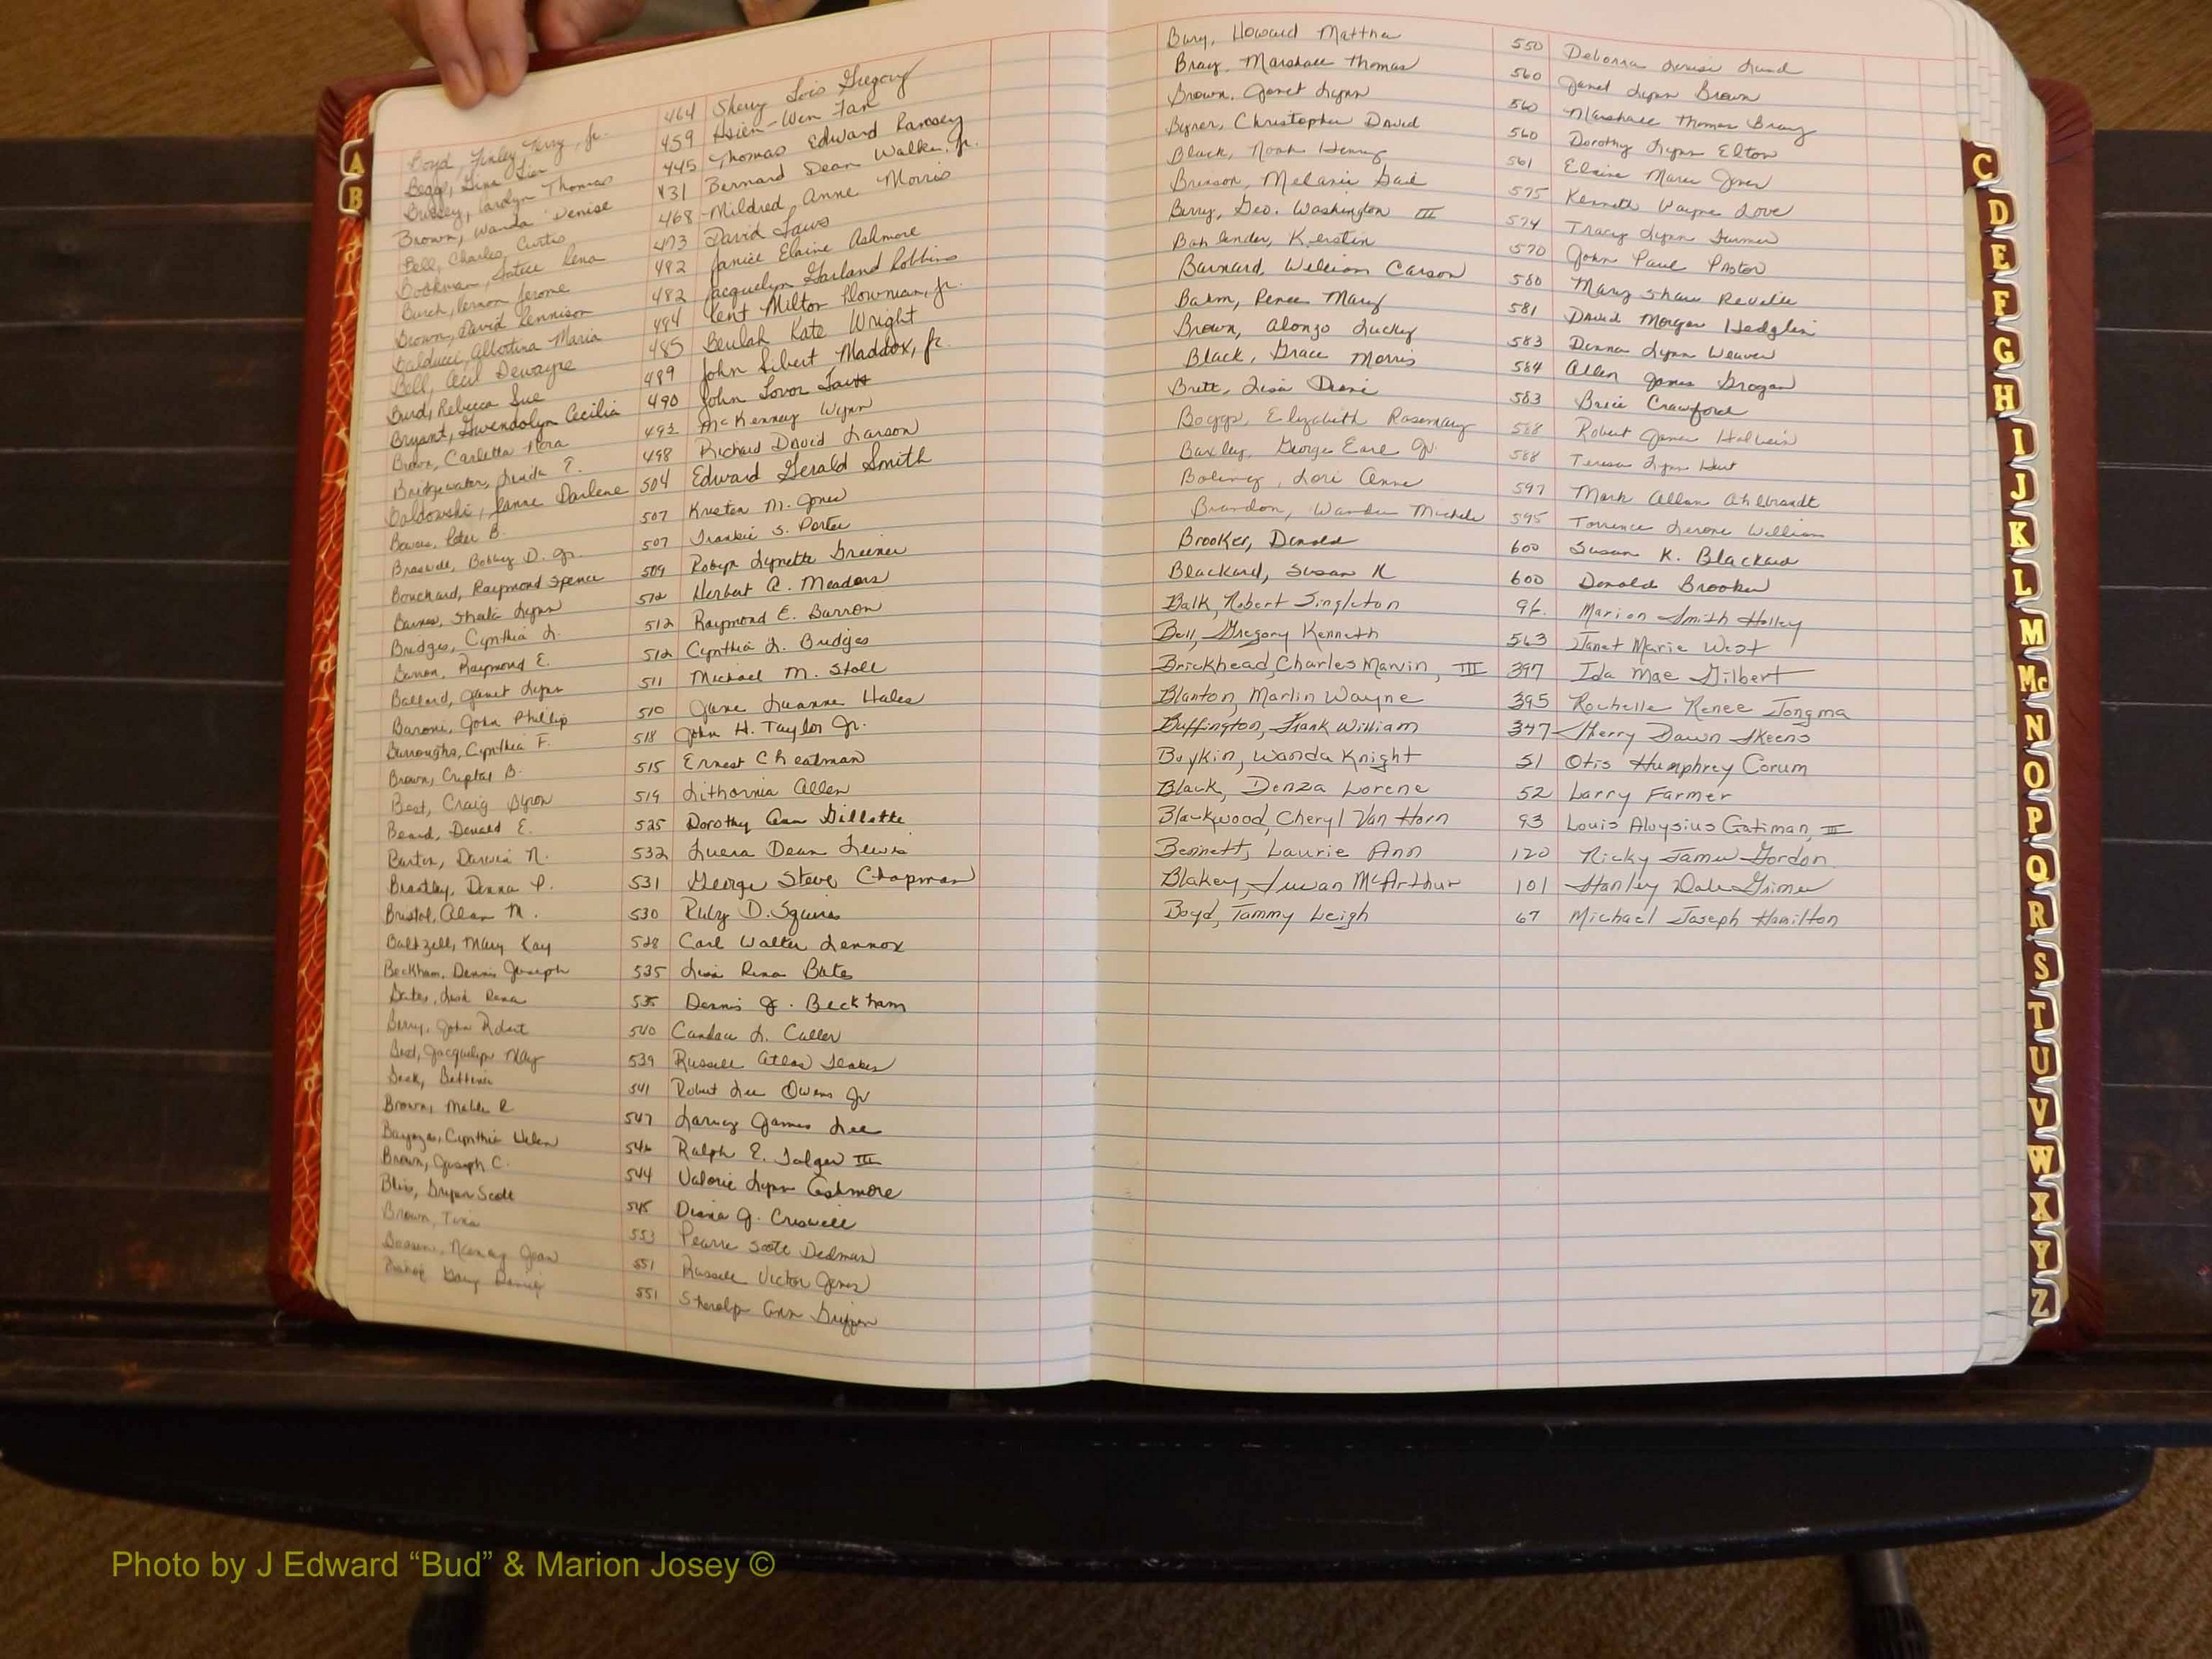 Boyd, Finley Terry, Jr. 464 Sherry Lois Gregory
Beggs, Gina 459 Hsien-Wen Fan
Bussey, Carolyn Thomas 445 Thomas Edward Ramsey
Brown, Wanda Denise 431 Bernard Dean Walker, Jr.
Bell, Charles Curtis 468 Mildred Anne Morris
Bookman, Lena 473 David Laws
Burch, Vernon Jerome 482 Janice Elaine Ashmore
Brown, David Kennison 482 Jacquelyn Garland Robbins
Balducci, Albertina Maria 484 Kent Milton Plowman, Jr.
Bell, Cecil Dewayne 485 Beulah Kate Wright
Burd, Rebecca Sue 489 John Sibert Maddox, Jr.
Bryant, Gwendolyn Cecilia 490 John Lovor
Brown, Carletta Nora 492 McKenney Wynn
Bridgewater, Linda E. 498 Richard David Larson
Baldowski, Janne Darlene 504 Edward Gerald Smith
Peter B. 507 Kristen M. Jones
Braswell, Bobby D. Jr. 507 Frankie S. Porter
Bouchard, Raymond Spence 509 Robyn Lynette Greiner
Barnes, Sheila Lynn 512 Herbert A. Meadors
Bridges, Cynthia L. 512 Raymond E. Barron
Barron, Raymond E. 512 Cynthia L. Bridges
Ballard, Janet Lynn 511 Michael M. Stoll
Baroni, John Phillip 510 Jane Luanne Hales
Burroughs, Cynthia F. 518 John H. Taylor Jr.
Brown, Crystal B. 515 Ernest Cheatman
Best, Craig Byron 519 Lithornia Allen
Beard, Donald E. 525 Dorothy Ann Gillette
Barton, Darwin N. 532 Luera Dean Lewis
Brantley, Donna P. 531 George Steve Chapman
Bristol, Alan M. 530 Ruby D. Squires
Baltzell, Mary Kay 528 Carl Walter Lennox
Beckham, Dennis Joseph 535 Lisa Rena Bates
Bates, Lisa Rena 535 Dennis J. Beckham
Berry, John Robert 540 Candace L. Culler
Jacquelyn May 539 Russell Atlas
Beek, Bettina 541 Robert Lee Owens Jr
Brown, R 547 James Lee
Cynthia Helen 546 Ralph E. III
Brown, Joseph C. 544 Valorie Lynn Ashmore
Bliss, Bryan Scott 545 Diana J. Criswell
Brown, Tina 553 Pearre Scott Dedman
Nancy Jean 551 Russell Victor Jones
Bishop Gary Daniel 551 Sheralyn Ann Griffin
Bury, Howard Matthew 550 Deborra Louise Lund
Bray, Marshall Thomas 560 Janet Lynn Brown
Brown, Janet Lynn 560 Marshall Thomas Bray
Byner, Christopher David 560 Dorothy Lynn Elton
Black, Noah Henry 561 Elaine Marie Jones
Brinson, Melanie Gail 575 Kenneth Wayne Love
Berry, Geo. Washington III 574 Tracy Lynn Turner
Bohlender, Kerstin 570 John Paul Pastor
Barnard, William Carson 580 Mary Shaw Reville
Balm, Renee Mary 581 David Morgan Hedglin
Brown, Alonzo Lucky 583 Donna Lynn Weaver
Black, Grace Morris 584 Allen James Grogan
Britt, Lisa Diane 583 Brice Crawford
Boggs, Elizabeth Rosemary 588 Robert James Holbein
Baxley, George Earl Jr. 588 Teresa Lynn Hurt
Lori Anne 597 Mark Allan Ahlbrandt
Brandon, Wanda Michele 595 Torrence Jerome William
Brooker, Donald 600 Susan K. Blackard
Blackard, Susan K 600 Donald Brooker
Balk, Robert Singleton 96. Marion Smith Holley
Bell, Gregory Kenneth 563 Janet Marie West
Brickhead, Charles Marvin, III 397 Ida Mae Gilbert
Blanton, Marlin Wayne 395 Rochelle Renee Jongma
Buffington, Frank William 347 Sherry Dawn Skeens
Boykin, Wanda Knight 51 Otis Humphrey Corum
Black, Donza Lorene 52 Larry Farmer
Blackwood, Cheryl Van Horn 93 Louis Aloysius Gatiman, III
Bennett, Laurie Ann 120 Ricky James Gordon
Blakey, Susan McArthur 101 Stanley Dale Grimes
Boyd, Tammy Leigh 67 Michael Joseph Hamilton
A
B
C
D
E
F
G
H
I
J
K
L
M
Mc
N
O
P
Q
R
S
T
U
V
W
X
Y
Z
Photo by J Edward “Bud” & Marion Josey ©